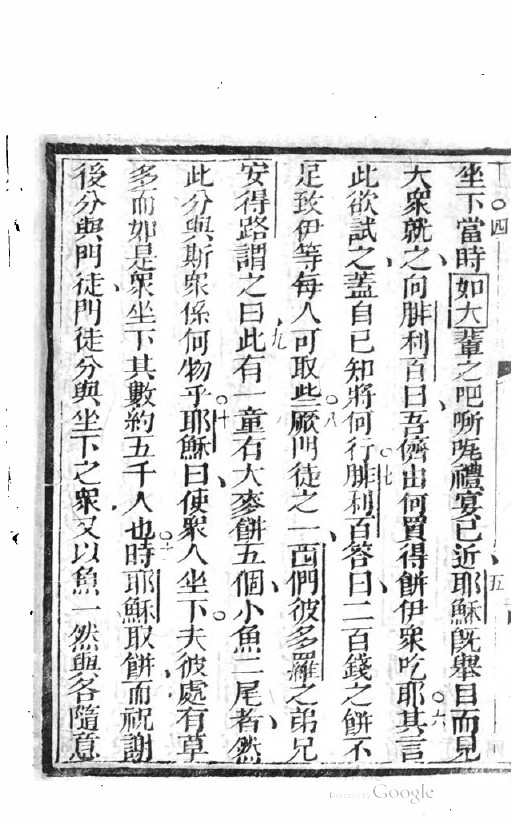 坐下當時如大輩之吧𠵽咓禮宴已近耶穌旣舉目而見
大衆就之向腓利百曰吾儕由何買得餅伊衆吃耶其言
此欲試之蓋自已知將何行腓利百答曰二百錢之餅不
足致伊等每人可取些厥門徒之一西們彼多羅之弟兄
安得路謂之曰此有一童右大麥餅五個小魚二尾者然
此分與斯衆係何物乎耶穌曰使衆人坐下夫彼處有草
多而如是衆坐下其數約五千人也時耶穌取餅而祝謝
後分與門徒門徒分與坐下之衆又以魚一然與各隨意
四
五
六
七
八
九
十
十一
Digitized by Google